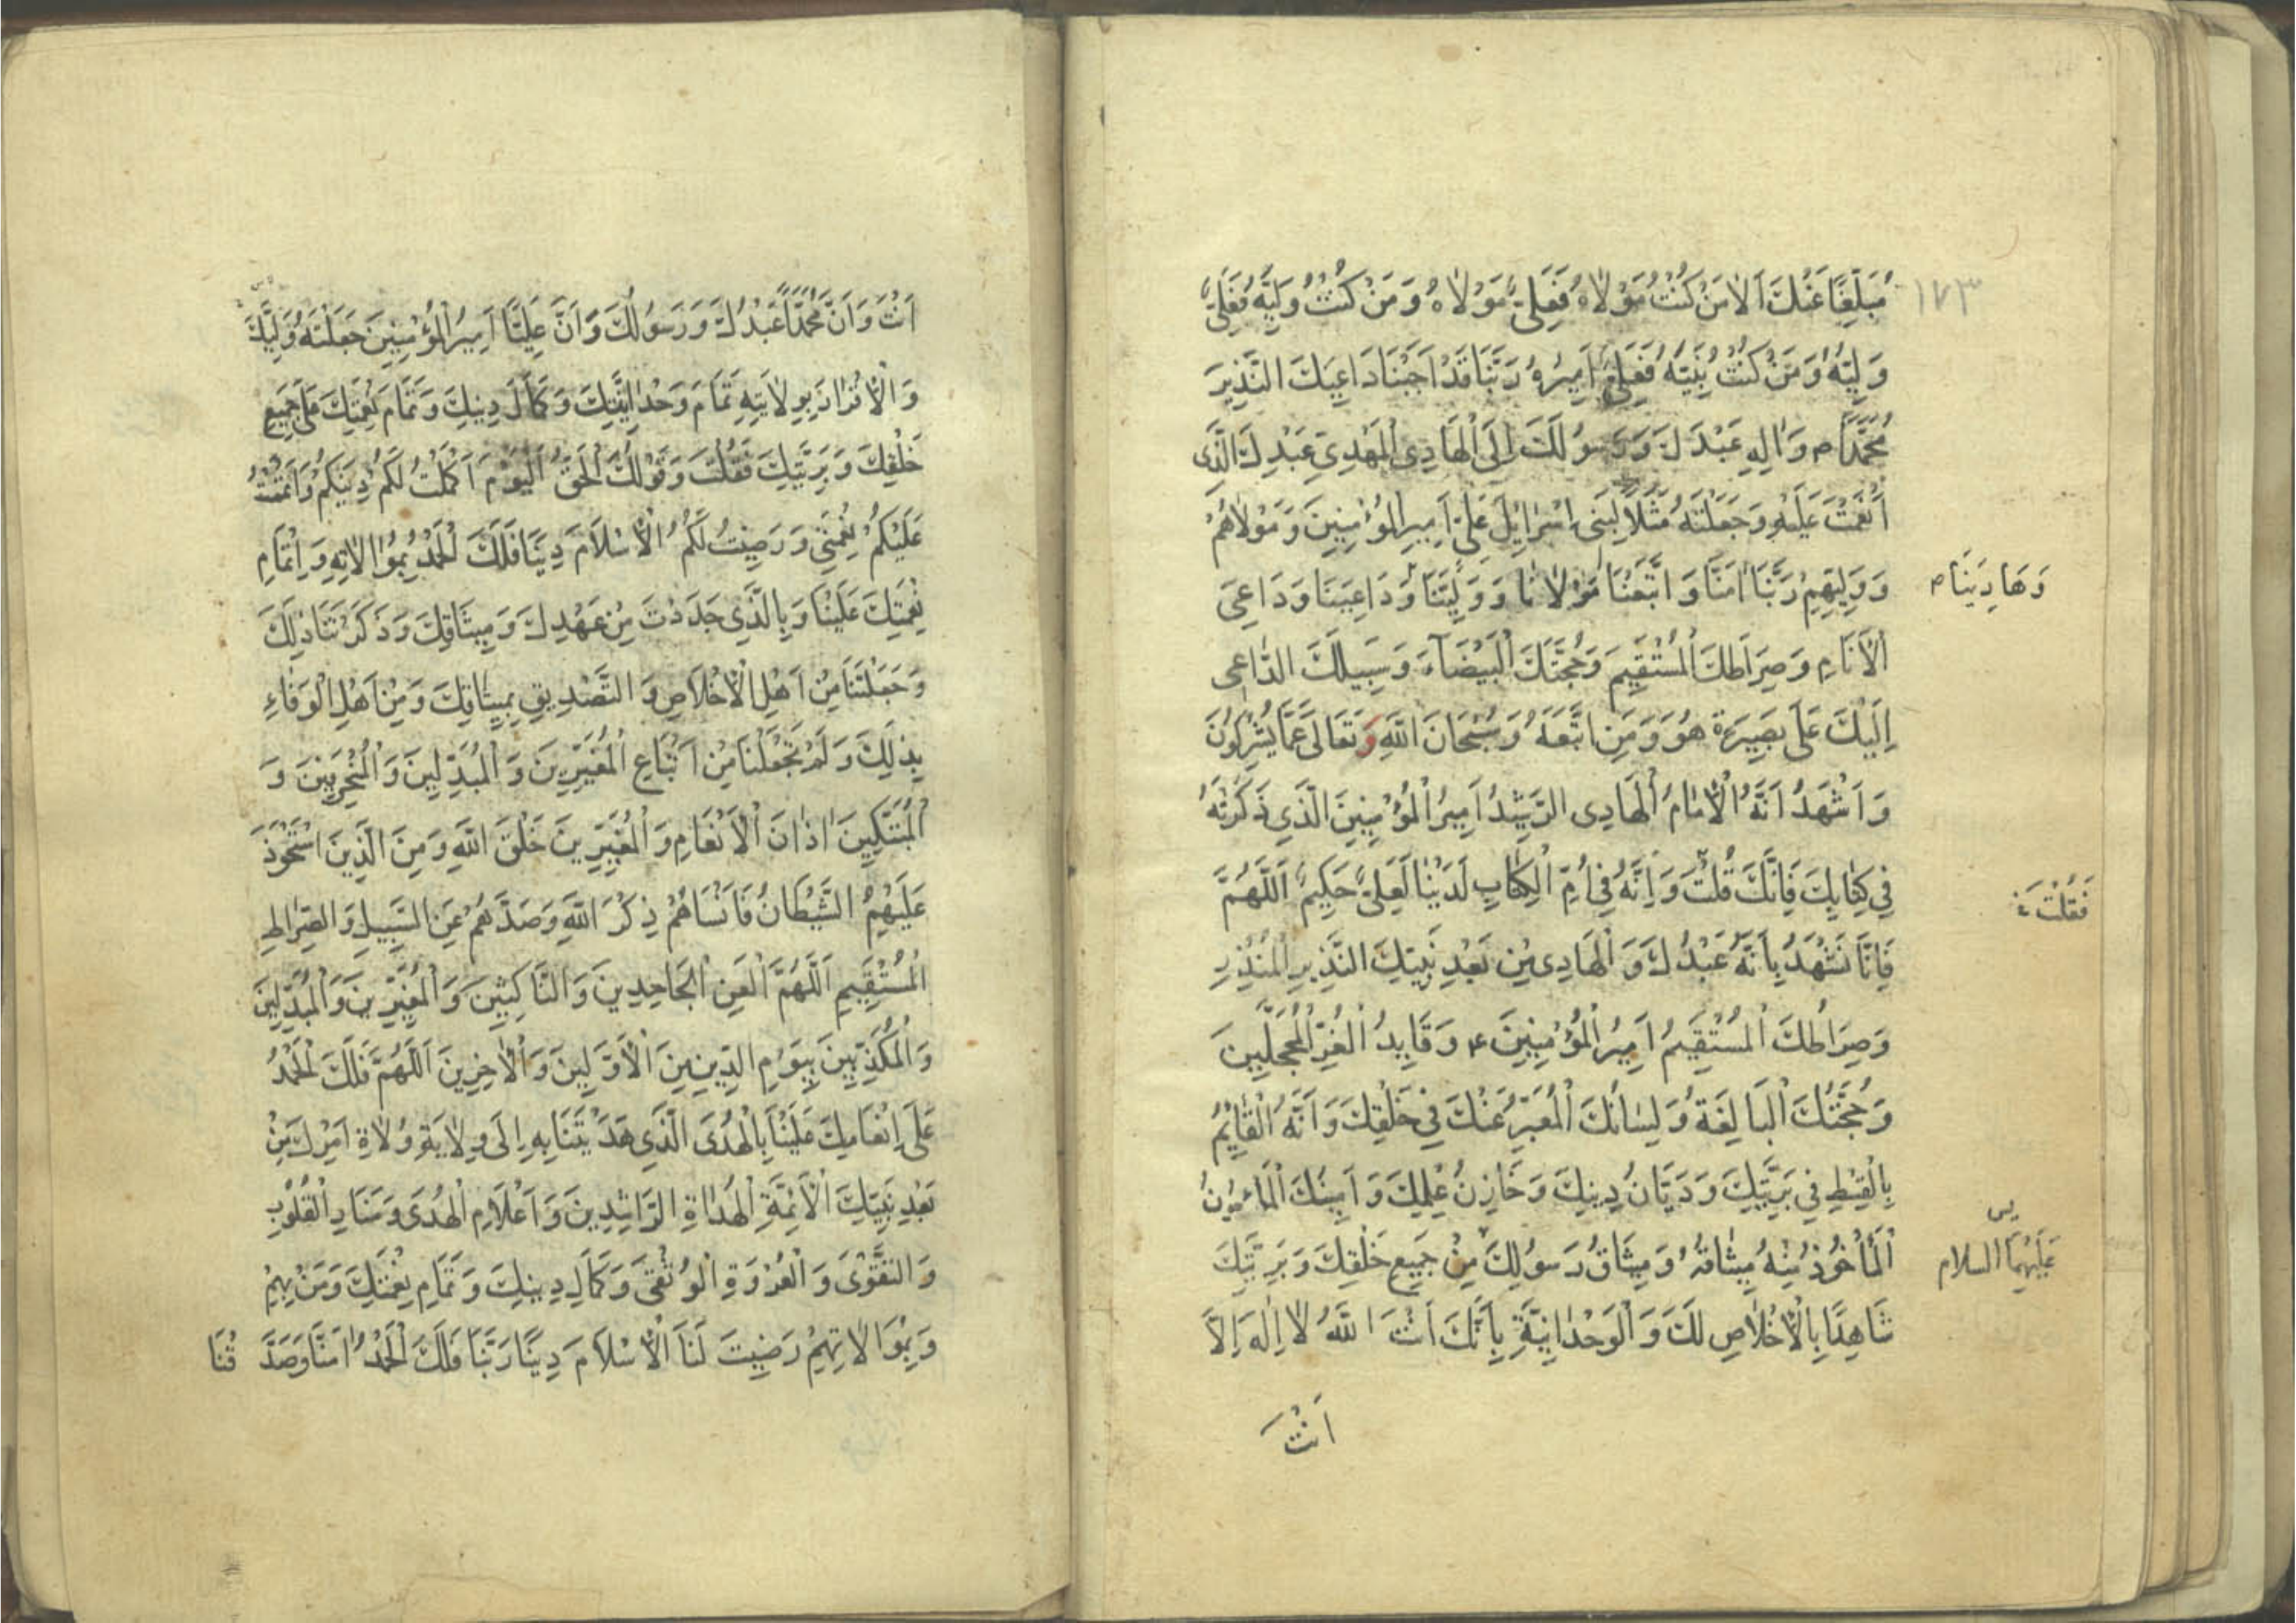 ١٧٣
مُبَلِّغًا عَنْكَ اَلا مَنْ كُنْتُ مَوْلاهُ فَعَلِىٌّ مَوْلاهُ وَمَنْ كُنْتُ وَلِيَّهُ فَعَلِىٌّ
وَلِيُّهُ وَمَنْ كُنْتُ نَبِيَّهُ فَعَلِىٌّ اَمِيرُهُ رَبَّنَا قَدْ اَجَبْنَا دَاعِيَكَ النَّذِيرَ
مُحَمَّدًا م وَالِهِ عَبْدَكَ وَرَسُولَكَ اِلَى الْهَادِى الْمَهْدِىِّ عَبْدِكَ الَّذِى
اَنْعَمْتَ عَلَيْهِ وَجَعَلْتَهُ مَثَلًا لِبَنِى اِسْرَائِيلَ عَلِىٍّ اَمِيرِ الْمُؤْمِنِينَ وَمَوْلاهُمْ
وَوَلِيِّهِمْ رَبَّنَا امَنَّا وَاتَّبَعْنَا مَوْلانَا وَوَلِيَّنَا وَدَاعِيَنَا وَدَاعِىَ
وَهَادِيَنَا م
الْاَنَامِ وَصِرَاطَكَ الْمُسْتَقِيمَ وَحُجَّتَكَ الْبَيْضَآءَ وَسَبِيلَكَ الدَّاعِى
اِلَيْكَ عَلَى بَصِيرَةٍ هُوَ وَمَنِ اتَّبَعَهُ وَسُبْحَانَ اللَّهِ وَتَعَالَى عَمَّا يُشْرِكُونَ
وَاَشْهَدُ اَنَّهُ الْاِمَامُ الْهَادِى الرَّشِيدُ اَمِيرُ الْمُؤْمِنِينَ الَّذِى ذَكَرْتَهُ
فِى كِتَابِكَ فَاِنَّكَ قُلْتَ وَاِنَّهُ فِى اُمِّ الْكِتَابِ لَدَيْنَا لَعَلِىٌّ حَكِيمٌ اَللَّهُمَّ
فَقُلْتَ
فَاِنَّا نَشْهَدُ بِاَنَّهُ عَبْدُكَ وَالْهَادِى مِنْ بَعْدِ نَبِيِّكَ النَّذِيرِ الْمُنْذِرِ
وَصِرَاطُكَ الْمُسْتَقِيمُ اَمِيرُ الْمُؤْمِنِينَ ع وَقَايِدُ الْغُرِّ الْمُحَجَّلِينَ
وَحُجَّتُكَ الْبَالِغَةُ وَلِسَانُكَ الْمُعَبِّرُ عَنْكَ فِى خَلْقِكَ وَاَنَّهُ الْقَايِمُ
بِالْقِسْطِ فِى بَرِيَّتِكَ وَدَيَّانُ دِينِكَ وَخَازِنُ عِلْمِكَ وَاَمِينُكَ الْمَامُونُ
الْمَاْخُوذُ مِنْهُ مِيثَاقُهُ وَمِيثَاقُ رَسُولِكَ مِنْ جَمِيعِ خَلْقِكَ وَبَرِيَّتِكَ
عَلَيْهِمَا السلام
شَاهِدًا بِالْاِخْلاصِ لَكَ وَالْوَحْدَانِيَّةِ بِاَنَّكَ اَنْتَ اللَّهُ لا اِلَهَ اِلاَّ
اَنْتَ
اَنْتَ وَاَنَّ مُحَمَّدًا عَبْدُكَ وَرَسُولُكَ وَاَنَّ عَلِيًّا اَمِيرُ الْمُؤْمِنِينَ جَعَلْتَهُ وَلِيَّكَ
وَالْاِقْرَارَ بِوِلايَتِهِ تَمَامَ وَحْدَانِيَّتِكَ وَكَمَالَ دِينِكَ وَتَمَامَ نِعْمَتِكَ عَلَى جَمِيعِ
خَلْقِكَ وَبَرِيَّتِكَ فَقُلْتَ وَقَوْلُكَ الْحَقُّ اَلْيَوْمَ اَكْمَلْتُ لَكُمْ دِينَكُمْ وَاَتْمَمْتُ
عَلَيْكُمْ نِعْمَتِى وَرَضِيتُ لَكُمُ الْاِسْلاَمَ دِينًا فَلَكَ الْحَمْدُ بِمُوَالاتِهِ وَاِتْمَامِ
نِعْمَتِكَ عَلَيْنَا وَبِالَّذِى جَدَدْتَ مِنْ عَهْدِكَ وَمِيثَاقِكَ وَذَكَّرْتَنَا ذلِكَ
وَجَعَلْتَنَا مِنْ اَهْلِ الْاِخْلاَصِ وَالتَّصْدِيقِ بِمِيثَاقِكَ وَمِنْ اَهْلِ الْوَفَاءِ
بِذلِكَ وَلَمْ تَجْعَلْنَا مِنْ اَتْبَاعِ الْمُغَيِّرِينَ وَالْمُبَدِّلِينَ وَالْمُنْحَرِفِينَ وَ
الْمُبَتِّكِينَ اذَانَ الْاَنْعَامِ وَالْمُغَيِّرِينَ خَلْقَ اللَّهِ وَمِنَ الَّذِينَ اسْتَحْوَذَ
عَلَيْهِمُ الشَّيْطَانُ فَاَنْسَاهُمْ ذِكْرَ اللَّهِ وَصَدَّهُمْ عَنِ السَّبِيلِ وَالصِّرَاطِ
الْمُسْتَقِيمِ اَللَّهُمَّ الْعَنِ الْجَاحِدِينَ وَالنَّاكِثِينَ وَالْمُغَيِّرِينَ وَالْمُبَدِّلِينَ
وَالْمُكَذِّبِينَ بِيَوْمِ الدِّينِ مِنَ الْاَوَّلِينَ وَالْاخِرِينَ اَللَّهُمَّ فَلَكَ الْحَمْدُ
عَلَى اِنْعَامِكَ عَلَيْنَا بِالْهُدَى الَّذِى هَدَيْتَنَا بِهِ اِلَى وِلايَةِ وُلاةِ اَمْرِكَ مِنْ
بَعْدِ نَبِيِّكَ الْاَئِمَّةِ الْهُدَاةِ الرَّاشِدِينَ وَاَعْلَامِ الْهُدَى وَمَنَارِ الْقُلُوبِ
وَالتَّقْوَى وَالْعُرْوَةِ الْوُثْقَى وَكَمَالِ دِينِكَ وَتَمَامِ نِعْمَتِكَ وَمَنْ بِهِمْ
وَبِمُوَالاتِهِمْ رَضِيتَ لَنَا الْاِسْلاَمَ دِينًا رَبَّنَا فَلَكَ الْحَمْدُ امَنَّا وَصَدَّقْنَا